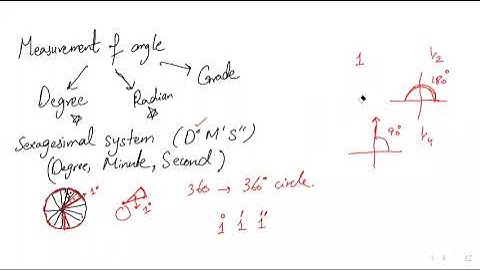 Measurement of angle
Degree
Radian
Grade
Sexagesimal system (D° M' S")
(Degree, Minute, Second)
1°
1°
360 → 360° circle.
1° 1' 1"
1
1/2
180°
90°
1/4